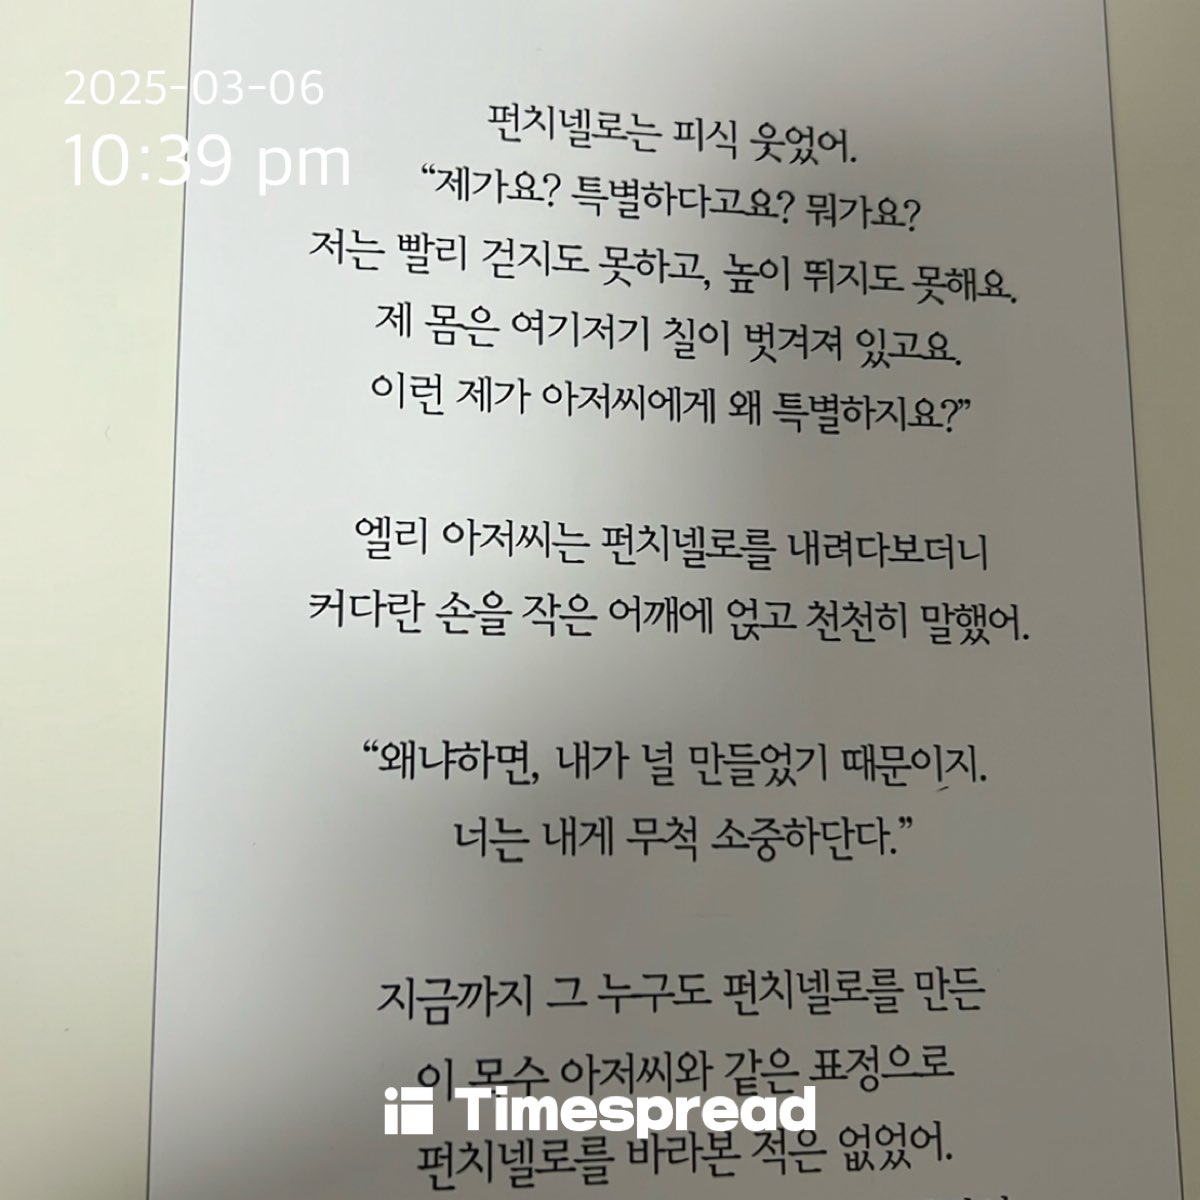 2025-03-06
10:39 pm
펀치넬로는 피식 웃었어.
“제가요? 특별하다고요? 뭐가요?
저는 빨리 걷지도 못하고, 높이 뛰지도 못해요.
제 몸은 여기저기 칠이 벗겨져 있고요.
이런 제가 아저씨에게 왜 특별하지요?”
엘리 아저씨는 펀치넬로를 내려다보더니
커다란 손을 작은 어깨에 얹고 천천히 말했어.
“왜냐하면, 내가 널 만들었기 때문이지.
너는 내게 무척 소중하단다.”
지금까지 그 누구도 펀치넬로를 만든
이 목수 아저씨와 같은 표정으로
Timespread
펀치넬로를 바라본 적은 없었어.